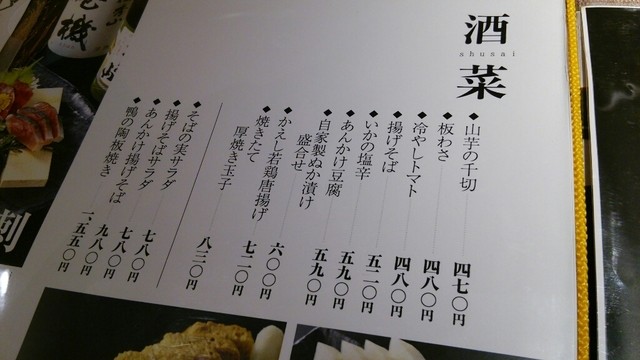 酒菜
shusai
◆山芋の千切 四七〇円
◆板わさ 四八〇円
◆冷やしトマト 四八〇円
◆揚げそば 五二〇円
◆いかの塩辛 五九〇円
◆あんかけ豆腐 五九〇円
◆自家製ぬか漬け
盛合せ 六〇〇円
◆かえし若鶏唐揚げ 七二〇円
◆焼きたて
厚焼き玉子 八三〇円
◆そばの実サラダ 七八〇円
◆揚げそばサラダ 七八〇円
◆あんかけ揚げそば 九八〇円
◆鴨の陶板焼き 一、五五〇円
機
刺